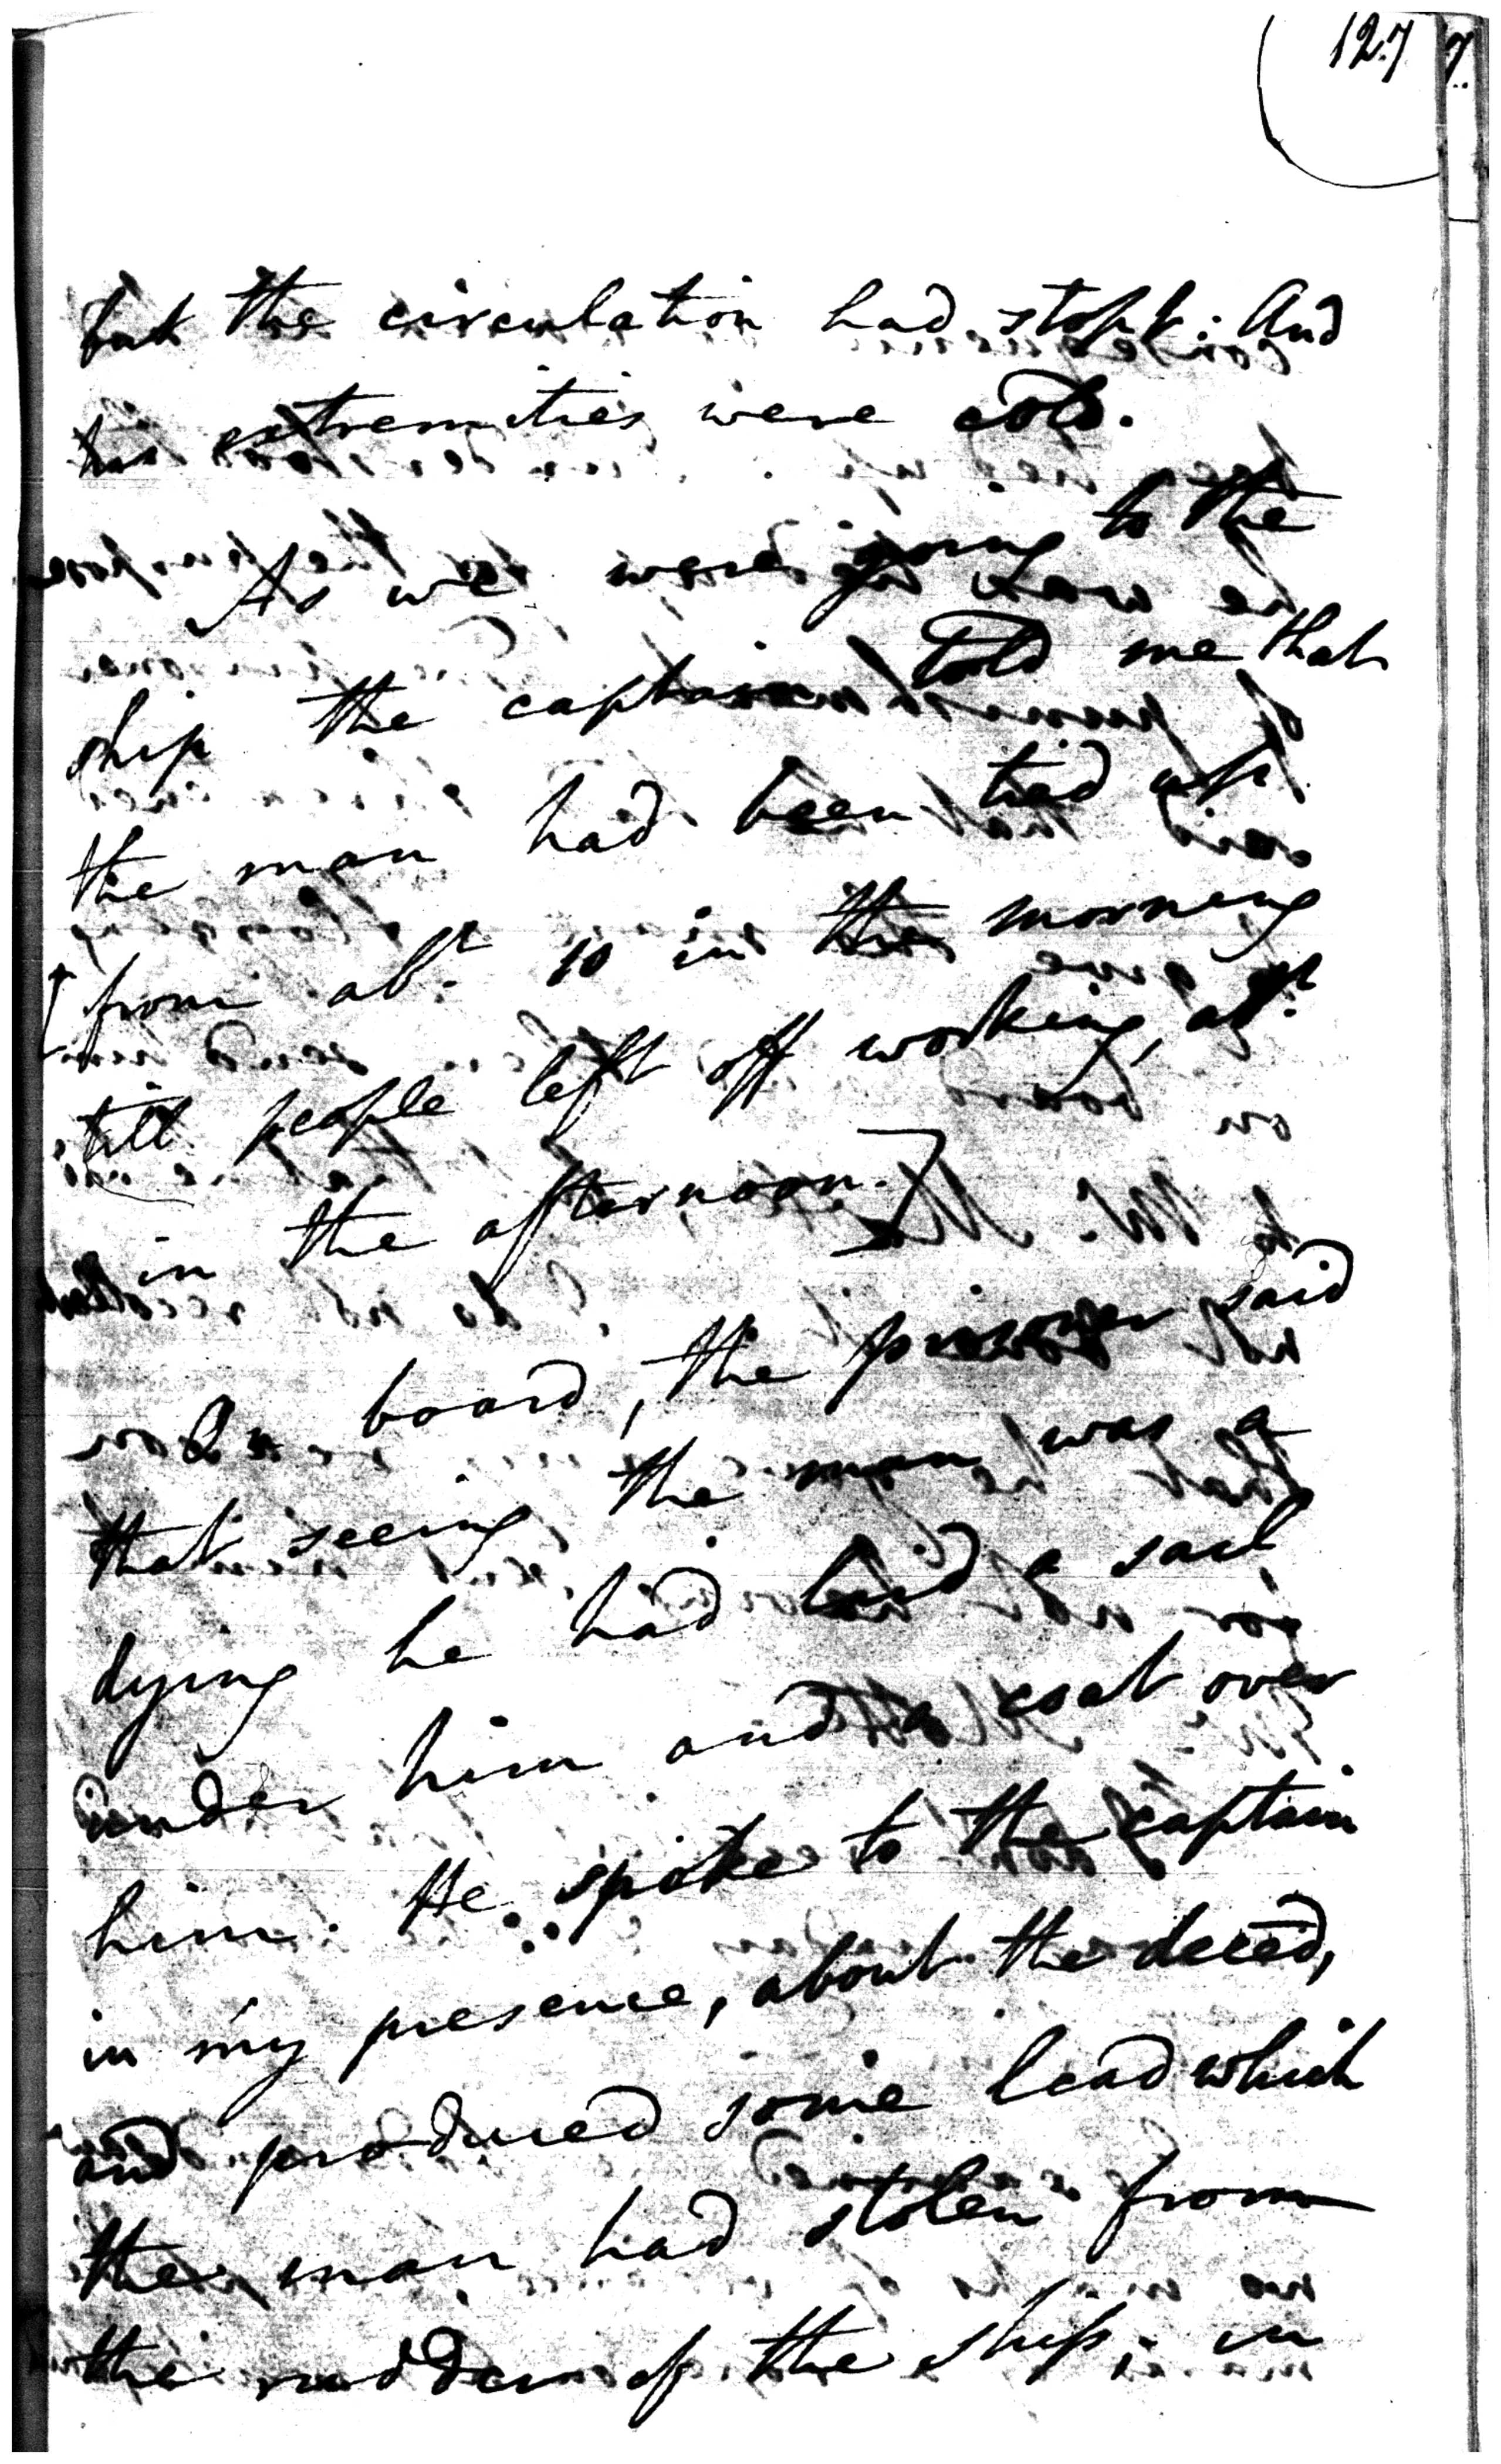 127
but the circulation had stopt: And
his extremities were cold.
As we were going to the
ship the captain told me that
the man had been tied up
[from abt. 10 in the morning
till people left off working, abt.
in the afternoon.]
On board, the prisoner said
that seeing the man was a
dying he had laid a sail
under him and a coat over
him. He spoke to the captain
in my presence, about the deced,
and produced some lead which
the man had stolen from
the rudder of the ship; in